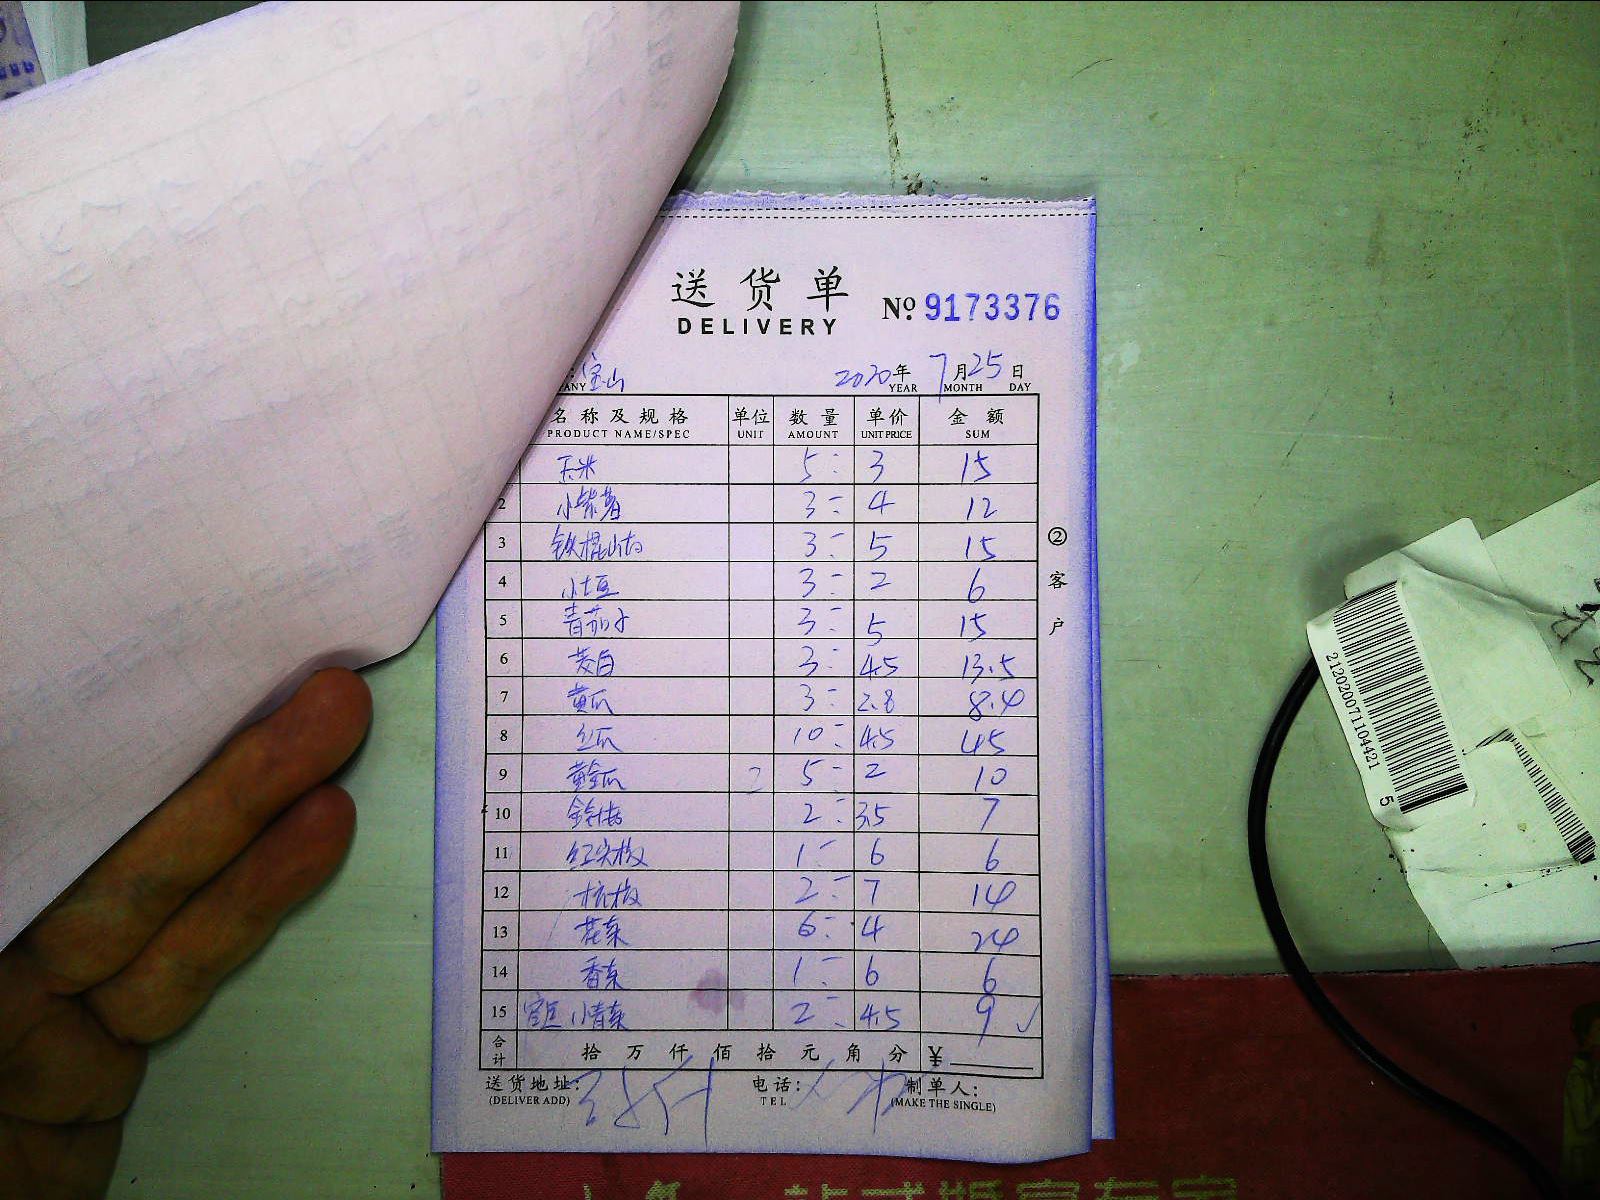 送货单
DELIVERY
№ 9173376
:宝山 2020年 7月25日
ANY YEAR MONTH DAY
名称及规格 单位 数量 单价 金额
PRODUCT NAME/SPEC UNIT AMOUNT UNIT PRICE SUM
玉米 5 3 15
2 小紫薯 3 4 12
3 铁棍山药 3 5 15
4 小土豆 3 2 6
5 青茄子 3 5 15
6 茭白 3 4.5 13.5
7 黄瓜 3 2.8 8.4
8 丝瓜 10 4.5 45
9 黄金瓜 5 2 10
10 2 3.5 7
11 红尖椒 1 6 6
12 杭椒 2 7 14
13 花菜 6 4 24
14 香菜 1 6 6
15 小青菜 2 4.5 9
合计 拾 万 仟 佰 拾 元 角 分 ¥
送货地址: 电话: 制单人:
(DELIVER ADD) TEL (MAKE THE SINGLE)
②客户
2120200711044215